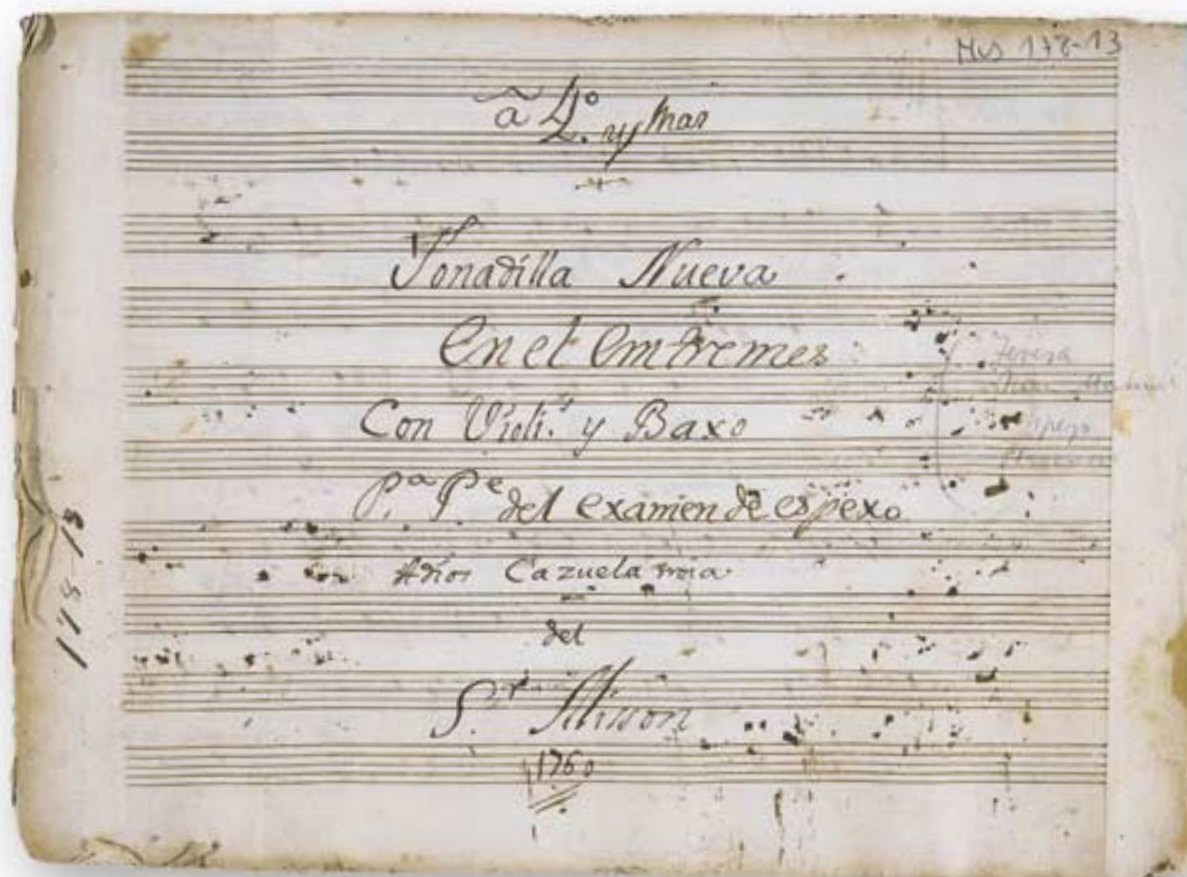 Mus 178-13
a 4.º y Mas
Tonadilla Nueva
En el Entremes
Con Violi.s y Baxo
P.a P.e del examen de espexo
Adios Cazuela mia
del
S.r Misson
1760
Teresa
178-13